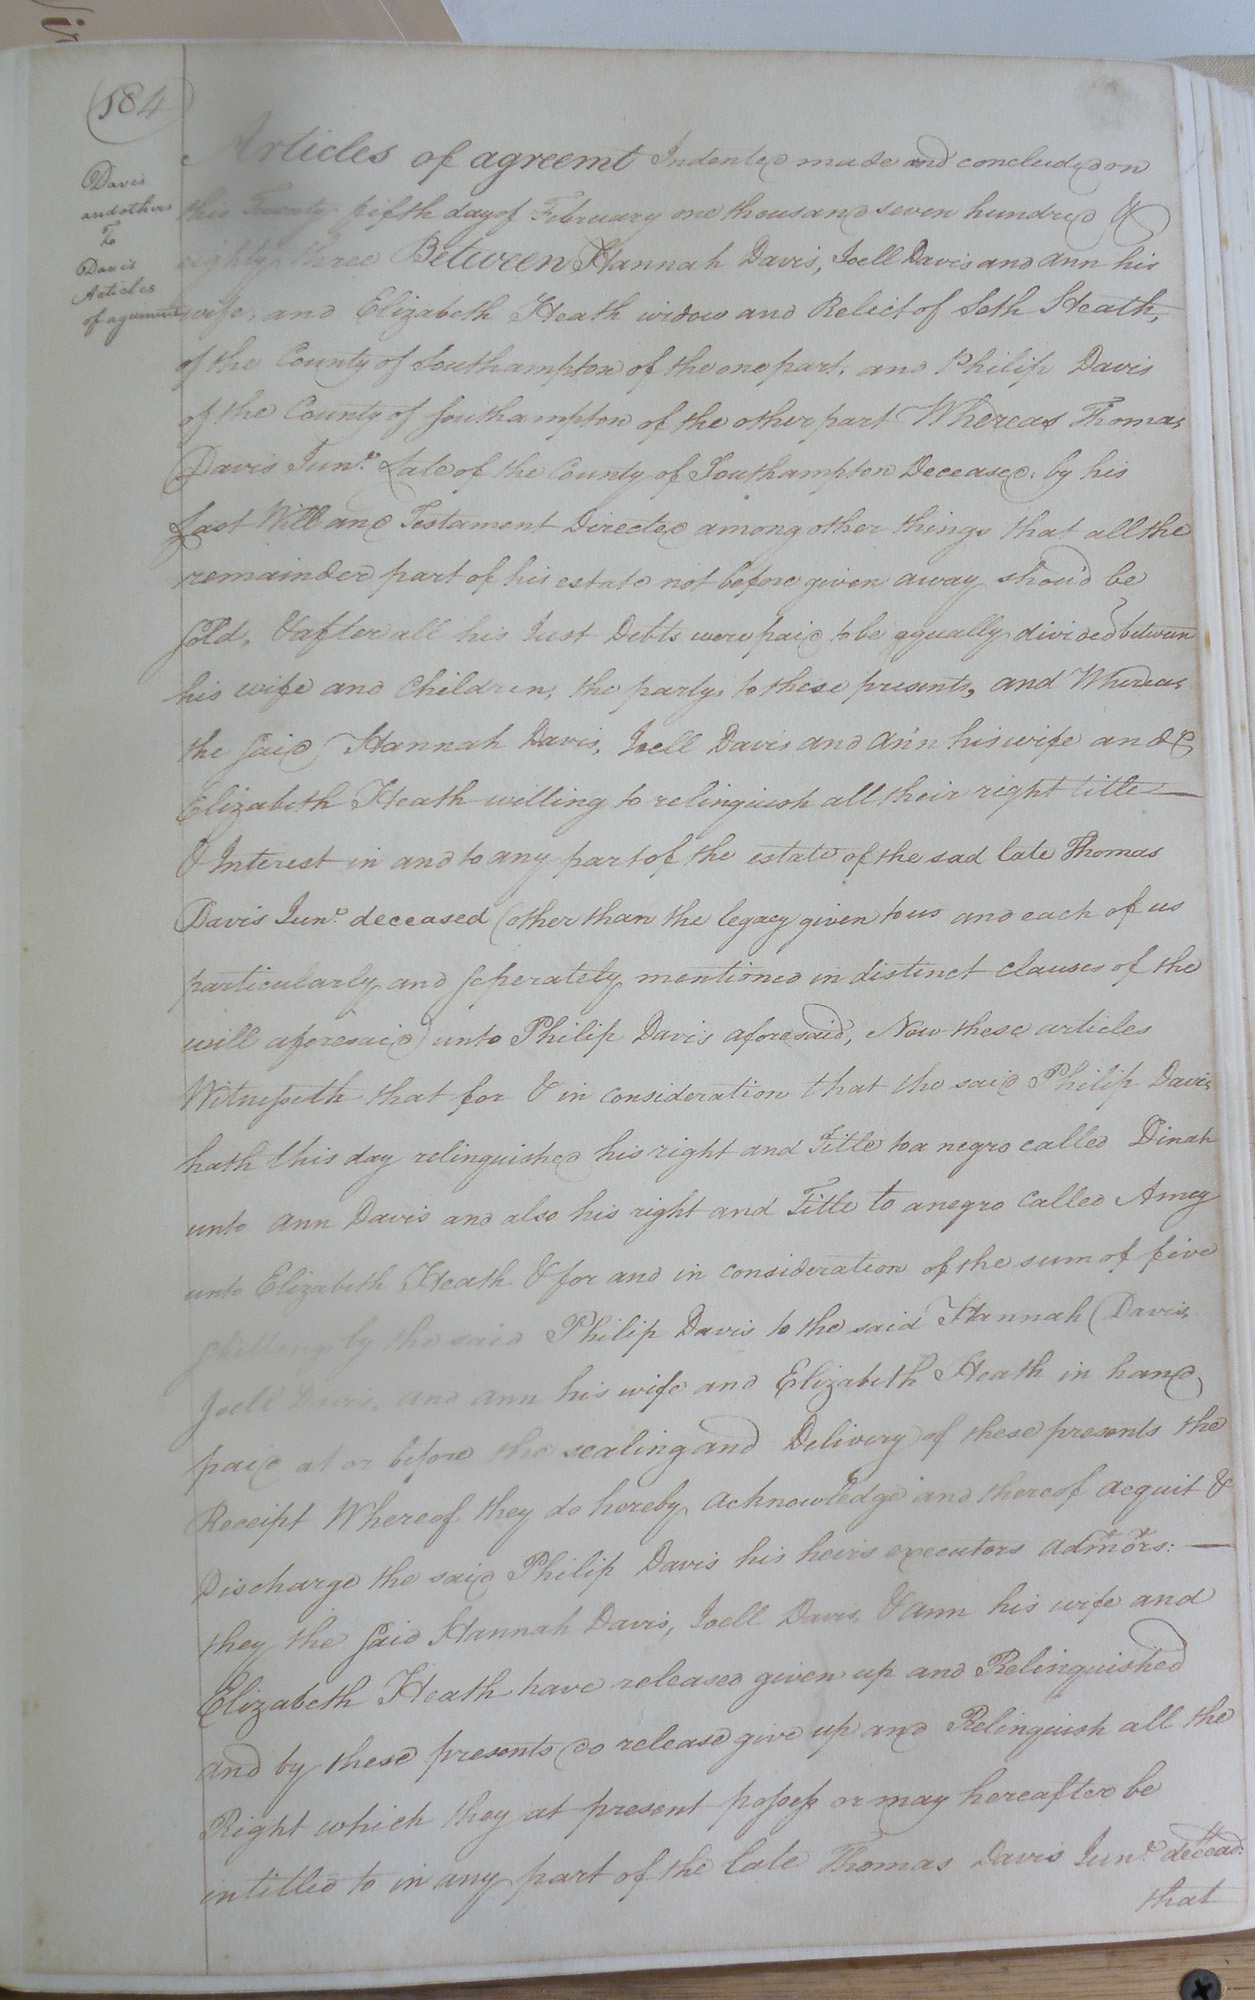 184
Davis
and others
To
Davis
Articles
of agument
Articles of agreemt Indented made and concluded on
this Twenty fifth day of February one thousand seven hundred &
eighty three Between Hannah Davis, Joell Davis and Ann his
wife, and Elizabeth Heath widow and Relict of Seth Heath,
of the County of Southampton of the one part, and Philip Davis
of the County of Southampton of the other part Whereas Thomas
Davis Junr. Late of the County of Southampton Deceased. by his
Last Will and Testament Directed among other things that all the
remainder part of his estate not before given away shoud be
sold, & after all his Just Debts were paid to be equally divided between
his wife and Children, the partys to these presents, and Whereas
the said Hannah Davis, Joell Davis and Ann his wife and
Elizabeth Heath willing to relinquish all their right title
& Interest in and to any part of the estate of the sad late Thomas
Davis Junr. deceased (other than the legacy given to us and each of us
particularly and seperately mentioned in distinct clauses of the
will aforesaid) unto Philip Davis aforesaid, Now these articles
Witnesseth that for & in consideration that the said Philip Davis
hath this day relinquished his right and Title to a negro called Dinah
unto Ann Davis and also his right and Title to a negro called Amey
unto Elizabeth Heath & for and in consideration of the sum of five
shillings by the said Philip Davis to the said Hannah Davis,
Joell Davis, and Ann his wife and Elizabeth Heath in hand
paid at or before the sealing and Delivery of these presents the
Receipt Whereof they do hereby acknowledge and thereof acquit &
Discharge the said Philip Davis his heirs executors admors:
they the said Hannah Davis, Joell Davis, & Ann his wife and
Elizabeth Heath have released given up and Relinguished
and by these presents do release give up and Relinguish all the
Right which they at present possess or may hereafter be
intitled to in any part of the late Thomas Davis Junr. decead:
that